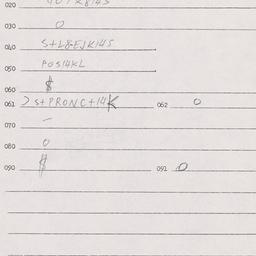 020
030 0
040 S+L8EJK14S
050 POS14KL
060 $
061 > S+PRONC+14K 062 0
070 –
080 0
090 $ 091 0